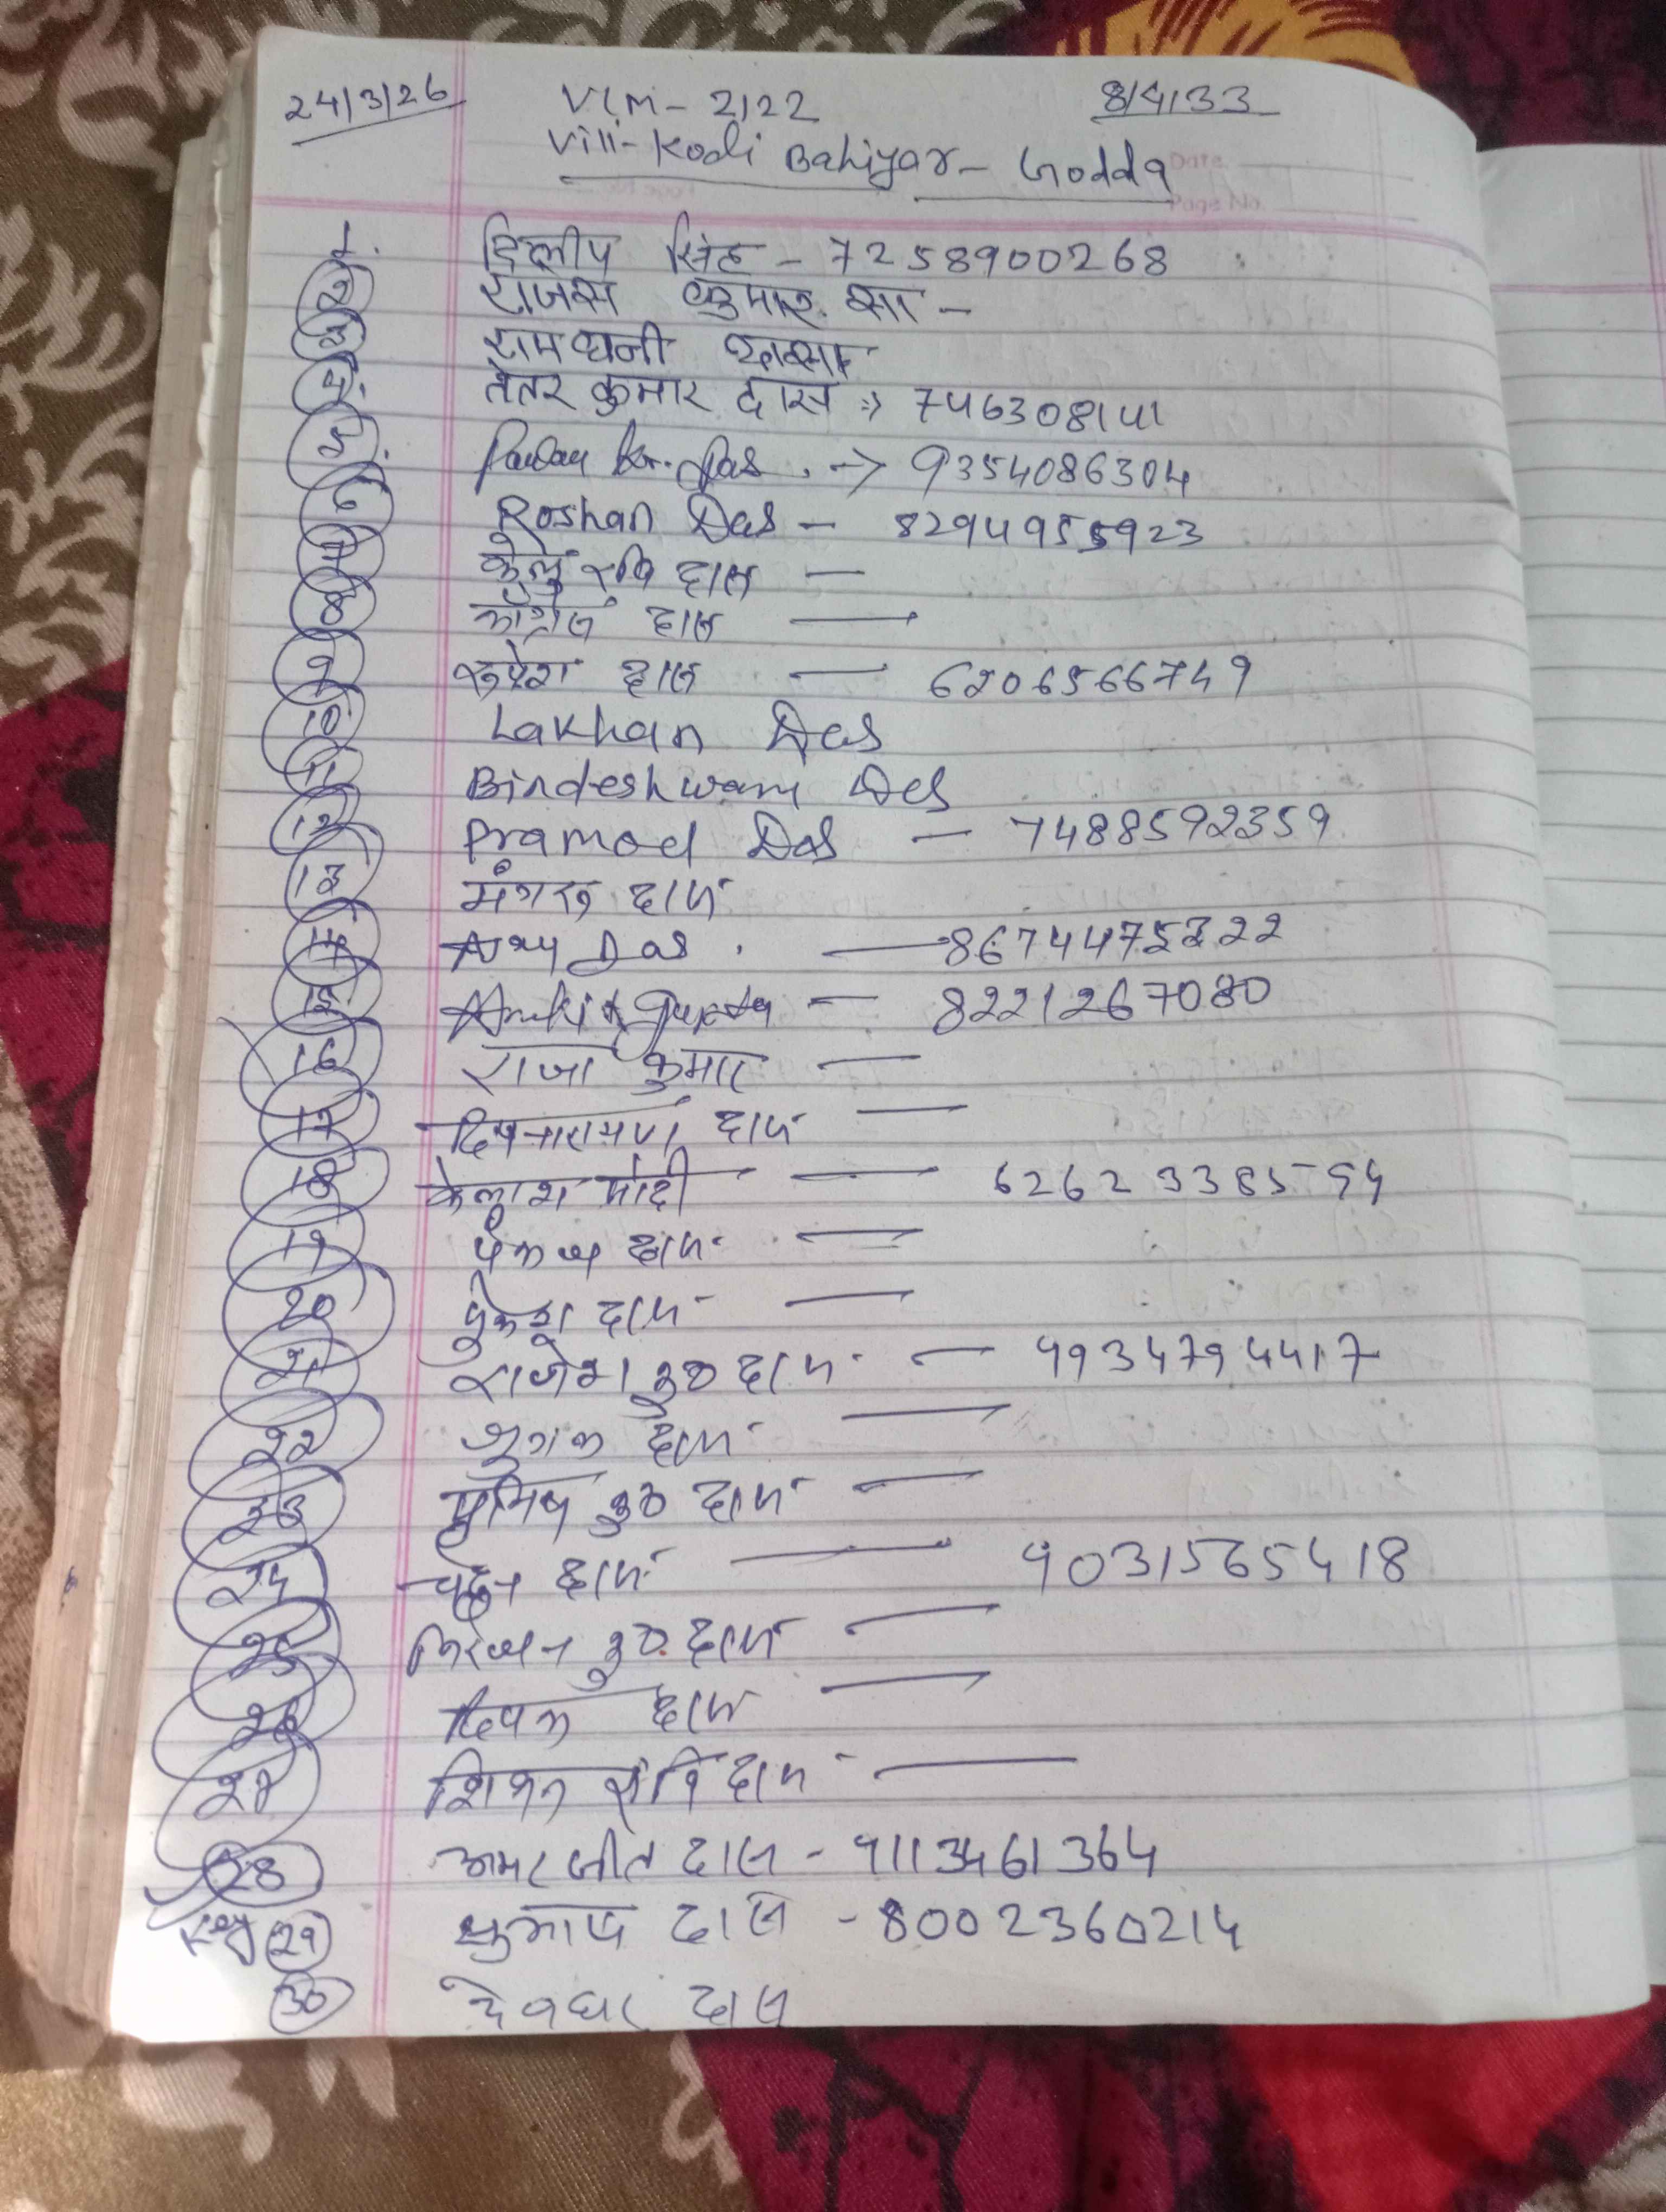 24/3/26 VLM - 2122 8/4/33
Vill - Kodi Bahiyar - Godda
Date
Page No.
1. दिलीप सिंह - 7258900268
2 कुमार सा -
3 रामधनी
4. तेतर कुमार दास => 7463081411
5. Pawan Kr. Das. -> 9354086304
6 Roshan Das - 8294955923
7 रवि दास -
8 दास -
9 रुपेश दास - 6206566749
10 Lakhan Das
11 Bindeshwary Das
12 Pramod Das - 7488592359
13 मंगल दास
14 Das. -
15 Ankit Gupta - 8221267080
16 राजा कुमार -
17 दिपनारायण दास -
18 केलाश मोदी -
19 पंकज दास -
20 मुकेश दास -
21 राजेश कु० दास - 9934794417
22 दास -
23 कु० दास -
24 चंदन दास - 9031565418
25 निरंजन कु० दास -
26 दिपक दास -
27 दास -
28 अमरजीत दास - 9113461364
29 सुभाष दास - 8002360214
30 देवघर दास